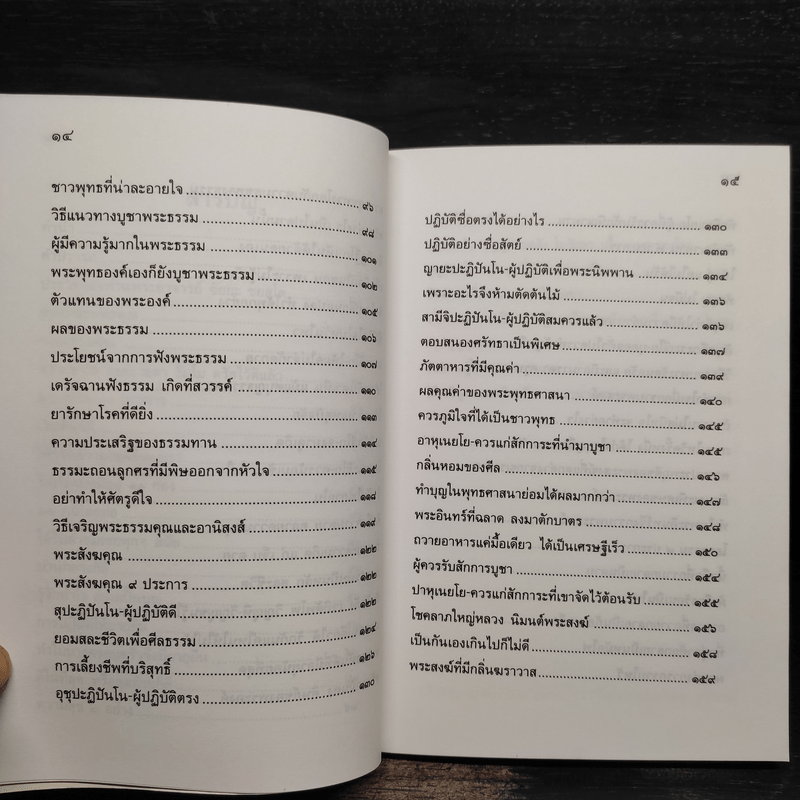 ๑๔
ชาวพุทธที่น่าละอายใจ ๙๖
วิธีแนวทางบูชาพระธรรม ๙๘
ผู้มีความรู้มากในพระธรรม ๑๐๑
พระพุทธองค์เองก็ยังบูชาพระธรรม ๑๐๒
ตัวแทนของพระองค์ ๑๐๕
ผลของพระธรรม ๑๐๖
ประโยชน์จากการฟังพระธรรม ๑๐๗
เดรัจฉานฟังธรรม เกิดที่สวรรค์ ๑๑๐
ยารักษาโรคที่ดียิ่ง ๑๑๓
ความประเสริฐของธรรมทาน ๑๑๔
ธรรมะถอนลูกศรที่มีพิษออกจากหัวใจ ๑๑๕
อย่าทำให้ศัตรูดีใจ ๑๑๘
วิธีเจริญพระธรรมคุณและอานิสงส์ ๑๑๙
พระสังฆคุณ ๑๒๒
พระสังฆคุณ ๙ ประการ ๑๒๒
สุปะฏิปันโน-ผู้ปฏิบัติดี ๑๒๒
ยอมสละชีวิตเพื่อศีลธรรม ๑๒๔
การเลี้ยงชีพที่บริสุทธิ์ ๑๒๖
อุชุปะฏิปันโน-ผู้ปฏิบัติตรง ๑๓๐
๑๕
ปฏิบัติซื่อตรงได้อย่างไร ๑๓๐
ปฏิบัติอย่างซื่อสัตย์ ๑๓๓
ญายะปะฏิปันโน-ผู้ปฏิบัติเพื่อพระนิพพาน ๑๓๔
เพราะอะไรจึงห้ามตัดต้นไม้ ๑๓๖
สามีจิปะฏิปันโน-ผู้ปฏิบัติสมควรแล้ว ๑๓๖
ตอบสนองศรัทธาเป็นพิเศษ ๑๓๗
ภัตตาหารที่มีคุณค่า ๑๓๙
ผลคุณค่าของพระพุทธศาสนา ๑๔๐
ควรภูมิใจที่ได้เป็นชาวพุทธ ๑๔๕
อาหุเนยโย-ควรแก่สักการะที่นำมาบูชา ๑๔๕
กลิ่นหอมของศีล ๑๔๖
ทำบุญในพุทธศาสนาย่อมได้ผลมากกว่า ๑๔๗
พระอินทร์ที่ฉลาด ลงมาตักบาตร ๑๔๘
ถวายอาหารแค่มื้อเดียว ได้เป็นเศรษฐีเร็ว ๑๕๐
ผู้ควรรับสักการบูชา ๑๕๔
ปาหุเนยโย-ควรแก่สักการะที่เขาจัดไว้ต้อนรับ ๑๕๕
โชคลาภใหญ่หลวง นิมนต์พระสงฆ์ ๑๕๖
เป็นกันเองเกินไปก็ไม่ดี ๑๕๘
พระสงฆ์ที่มีกลิ่นฆราวาส ๑๕๙